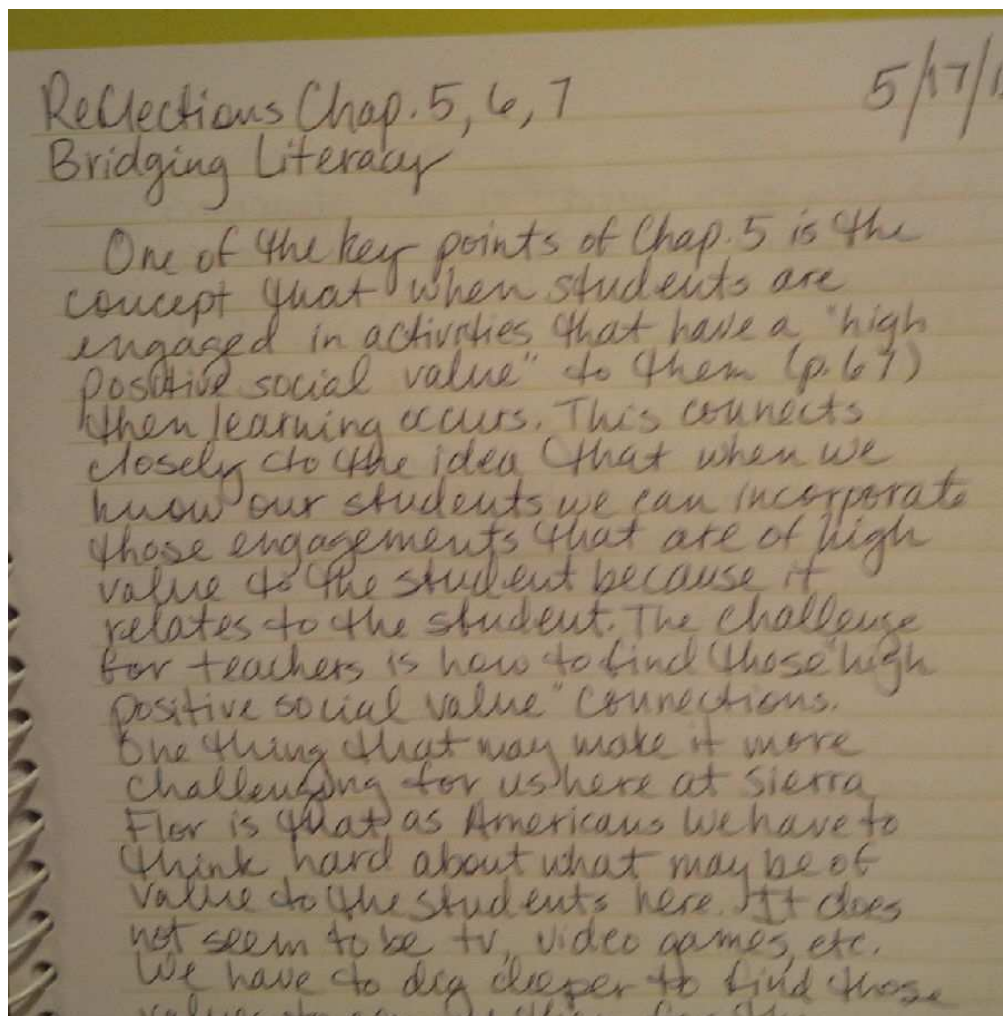 Reflections Chap. 5, 6, 7
5/17/1
Bridging Literacy
One of the key points of Chap. 5 is the
concept that when students are
engaged in activities that have a "high
positive social value" to them (p. 67)
then learning occurs. This connects
closely to the idea that when we
know our students we can incorporate
those engagements that are of high
value to the student because it
relates to the student. The challenge
for teachers is how to find those "high
positive social value" connections.
One thing that may make it more
challenging for us here at Sierra
Flor is that as Americans we have to
think hard about what may be of
value to the students here. It does
not seem to be tv, video games, etc.
We have to dig deeper to find those